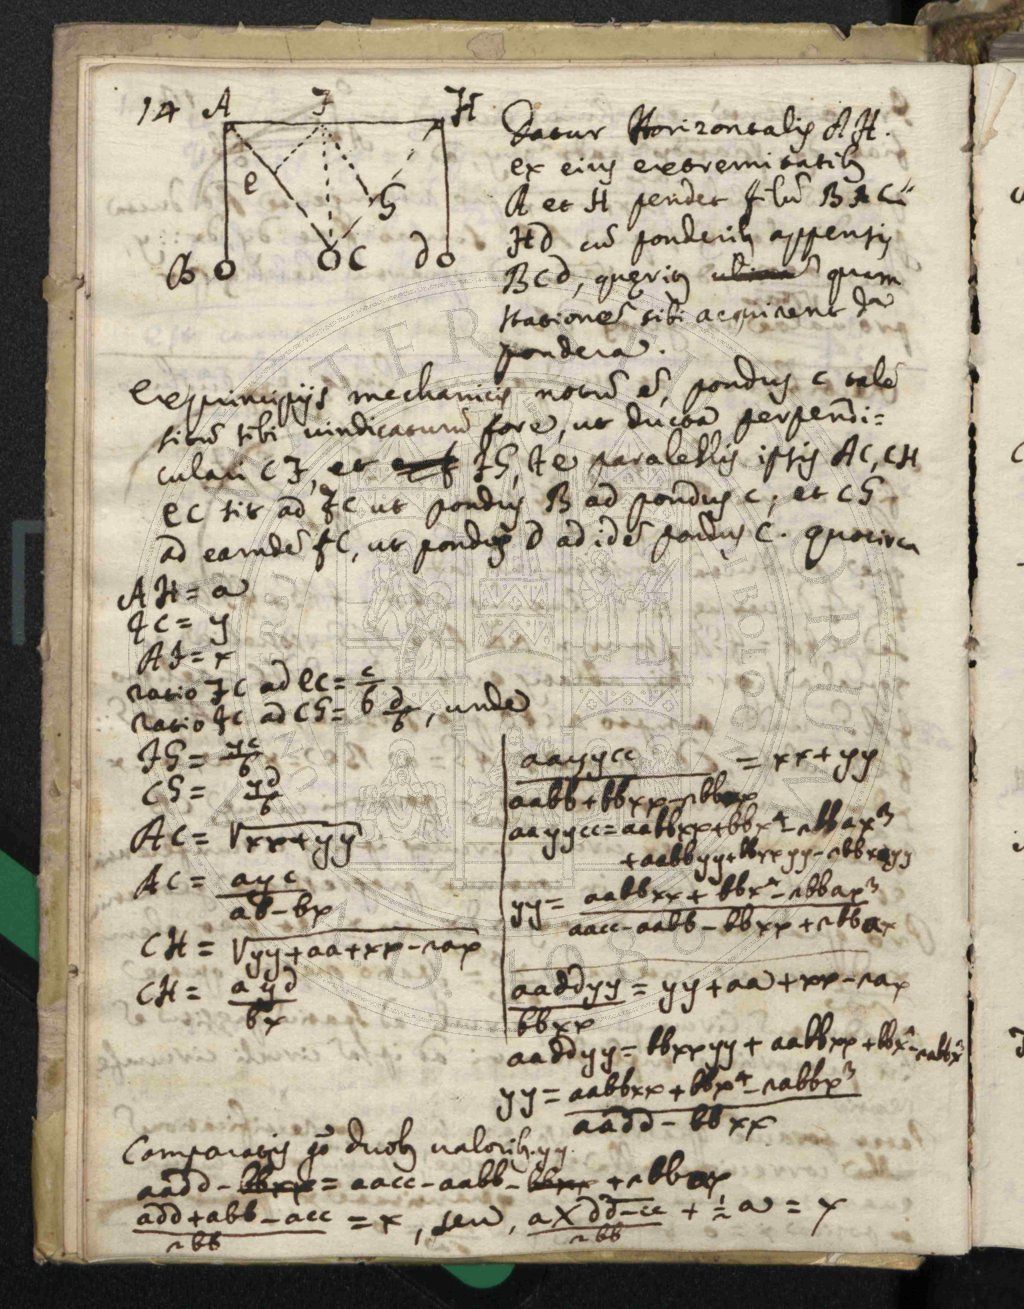 14 A F H
e G
B C d
Datur Horizontalis AH.
ex eius extremitatib
A et H pendet filũ BAC
Hd cũ ponderib appensis
BCd, queritr quam
stationẽ sibi acquirent dã
pondera.
Ex principijs mechanicis notũ ẽ, pondus C talẽ
sitũ sibi vindicaturũ fore, ut ducta perpendi=
culari CF, et FG, Fe paralellis ipsis AC, CH
eC sit ad FC ut pondus B ad pondus C; et CG
ad eamdẽ FC, ut pondus D ad idẽ pondus C. quocirca
AH = a
FC = y
AF = x
ratio FC ad eC = c/b
ratio FC ad CG = b d/b, unde
FG = yc/b
CG = yd/b
AC = √xx+yy
AC = ayc / ab-bx
CH = √yy+aa+xx-2ax
CH = ayd / bx
aayycc / aabb+bbxx-2bbax = xx+yy
aayycc=aabbxx+bbx⁴-2bbax³
+aabbyy+bbxxyy-2bbxayy
yy = aabbxx+bbx⁴-2bbax³ / aacc-aabb-bbxx+2bbax
aaddyy / bbxx = yy+aa+xx-2ax
aaddyy=bbxxyy+aabbxx+bbx⁴-2abbx³
yy = aabbxx+bbx⁴-2abbx³ / aadd-bbxx
Comparatis duob valorib. yy.
aadd-bbxx = aacc-aabb-bbxx+2bbax
add+abb-acc / 2bb = x, seu, a X dd-cc / 2bb + ½a = x